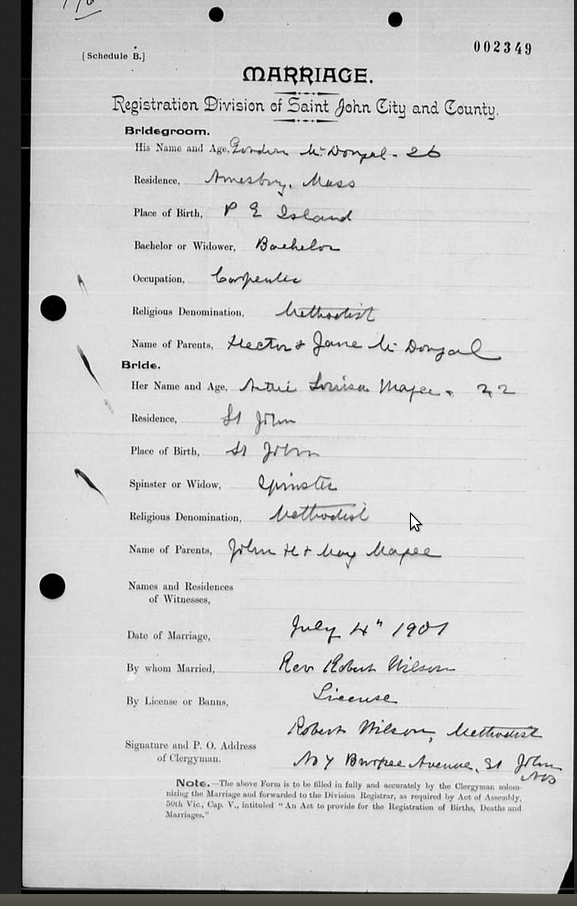 002349
[Schedule B.]
MARRIAGE.
Registration Division of Saint John City and County.
Bridegroom.
His Name and Age, Gordon McDougal - 26
Residence, Amesbury, Mass
Place of Birth, P E Island
Bachelor or Widower, Bachelor
Occupation, Carpenter
Religious Denomination, Methodist
Name of Parents, Hector & Jane McDougal
Bride.
Her Name and Age, Louisa Magee. 22
Residence, St John
Place of Birth, St John
Spinster or Widow, Spinster
Religious Denomination, Methodist
Name of Parents, John H & May Magee
Names and Residences
of Witnesses,
Date of Marriage, July 4th 1901
By whom Married, Rev Robert Wilson
By License or Banns, License
Robert Wilson, Methodist
Signature and P. O. Address
of Clergyman. No 7 Burpee Avenue, St John
NB
Note.—The above Form is to be filled in fully and accurately by the Clergyman solem-
nizing the Marriage and forwarded to the Division Registrar, as required by Act of Assembly,
50th Vic., Cap. V., intituled "An Act to provide for the Registration of Births, Deaths and
Marriages."